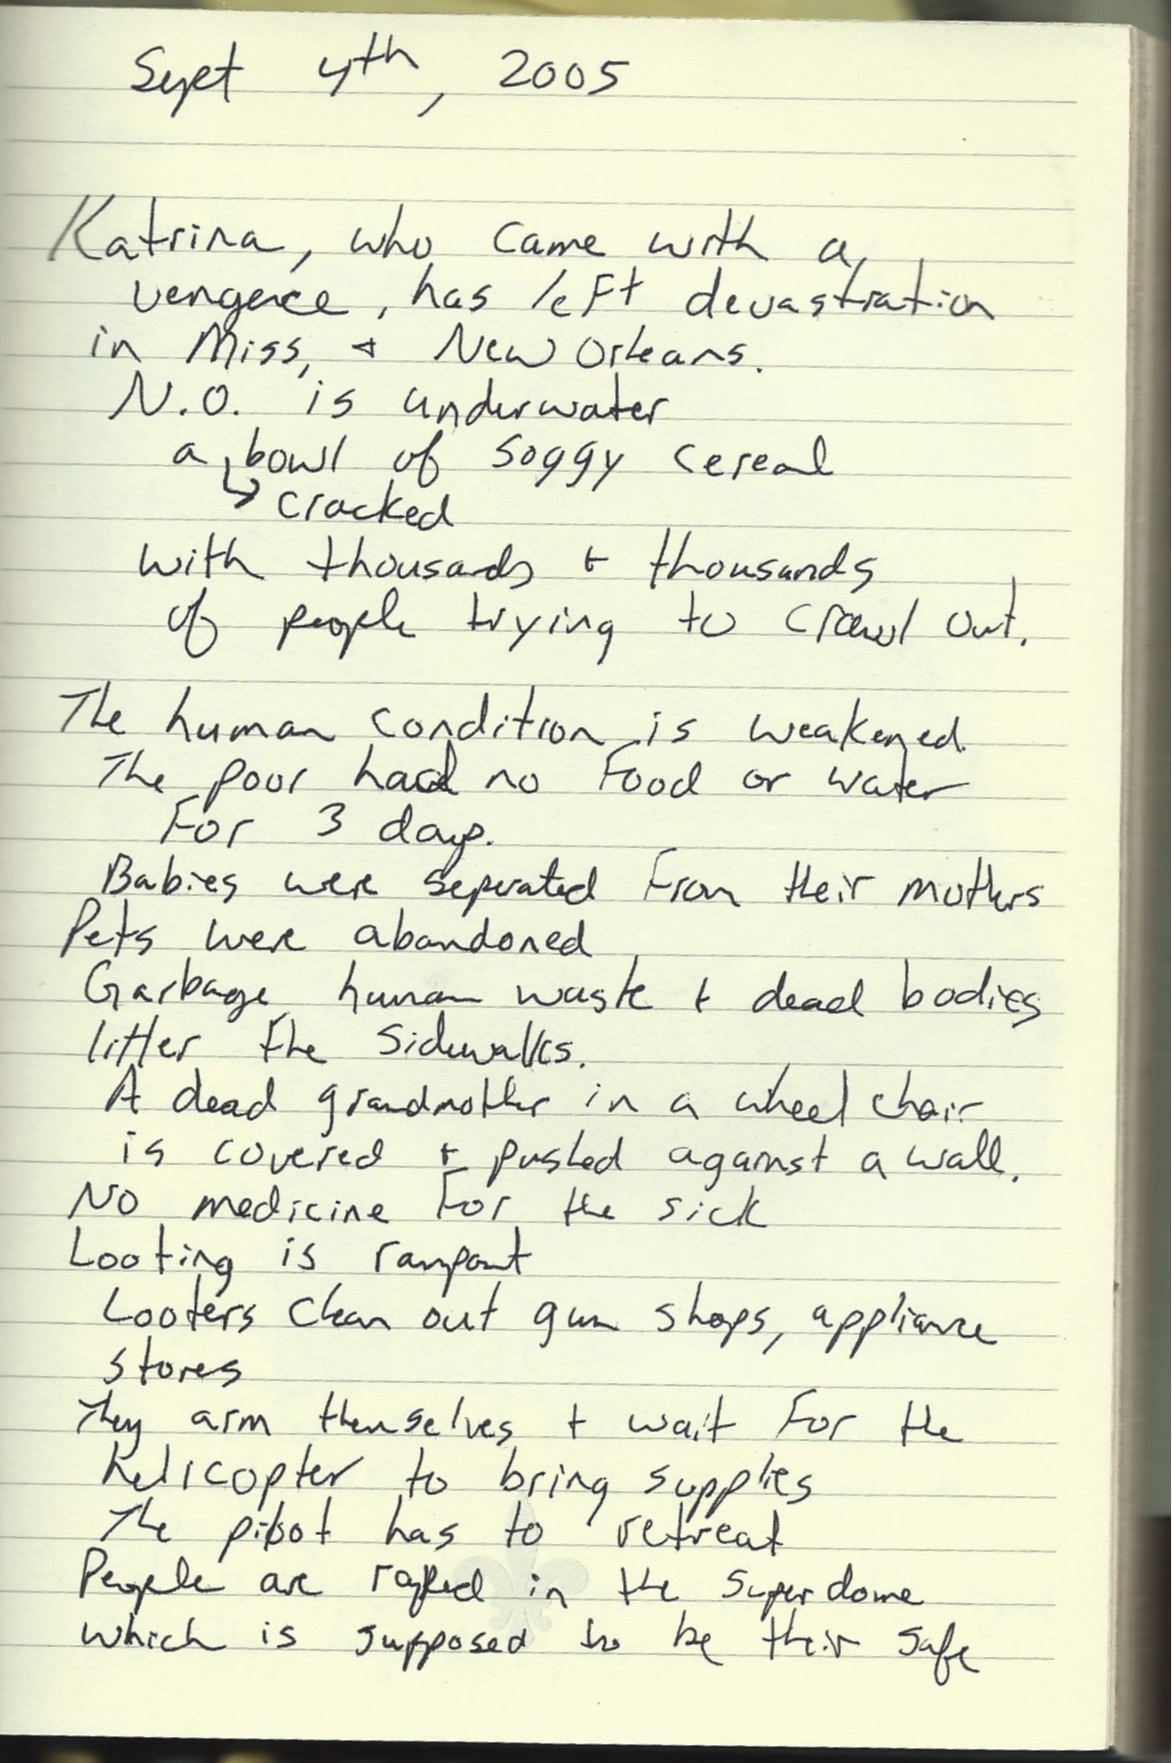 Sept 4th, 2005
Katrina, who came with a
vengence, has left devastration
in Miss, + New Orleans.
N.O. is underwater
a bowl of soggy cereal
↳ cracked
with thousands + thousands
of people trying to crawl out.
The human condition is weakened.
The poor had no food or water
For 3 days.
Babies were seperated from their mothers
Pets were abandoned
Garbage human waste + dead bodies
litter the sidewalks.
A dead grandmother in a wheel chair
is covered + pushed against a wall.
No medicine for the sick
Looting is rampant
Looters clean out gun shops, appliance
stores
They arm themselves + wait for the
helicopter to bring supplies
The pilot has to retreat
People are raped in the Superdome
which is supposed to be their safe